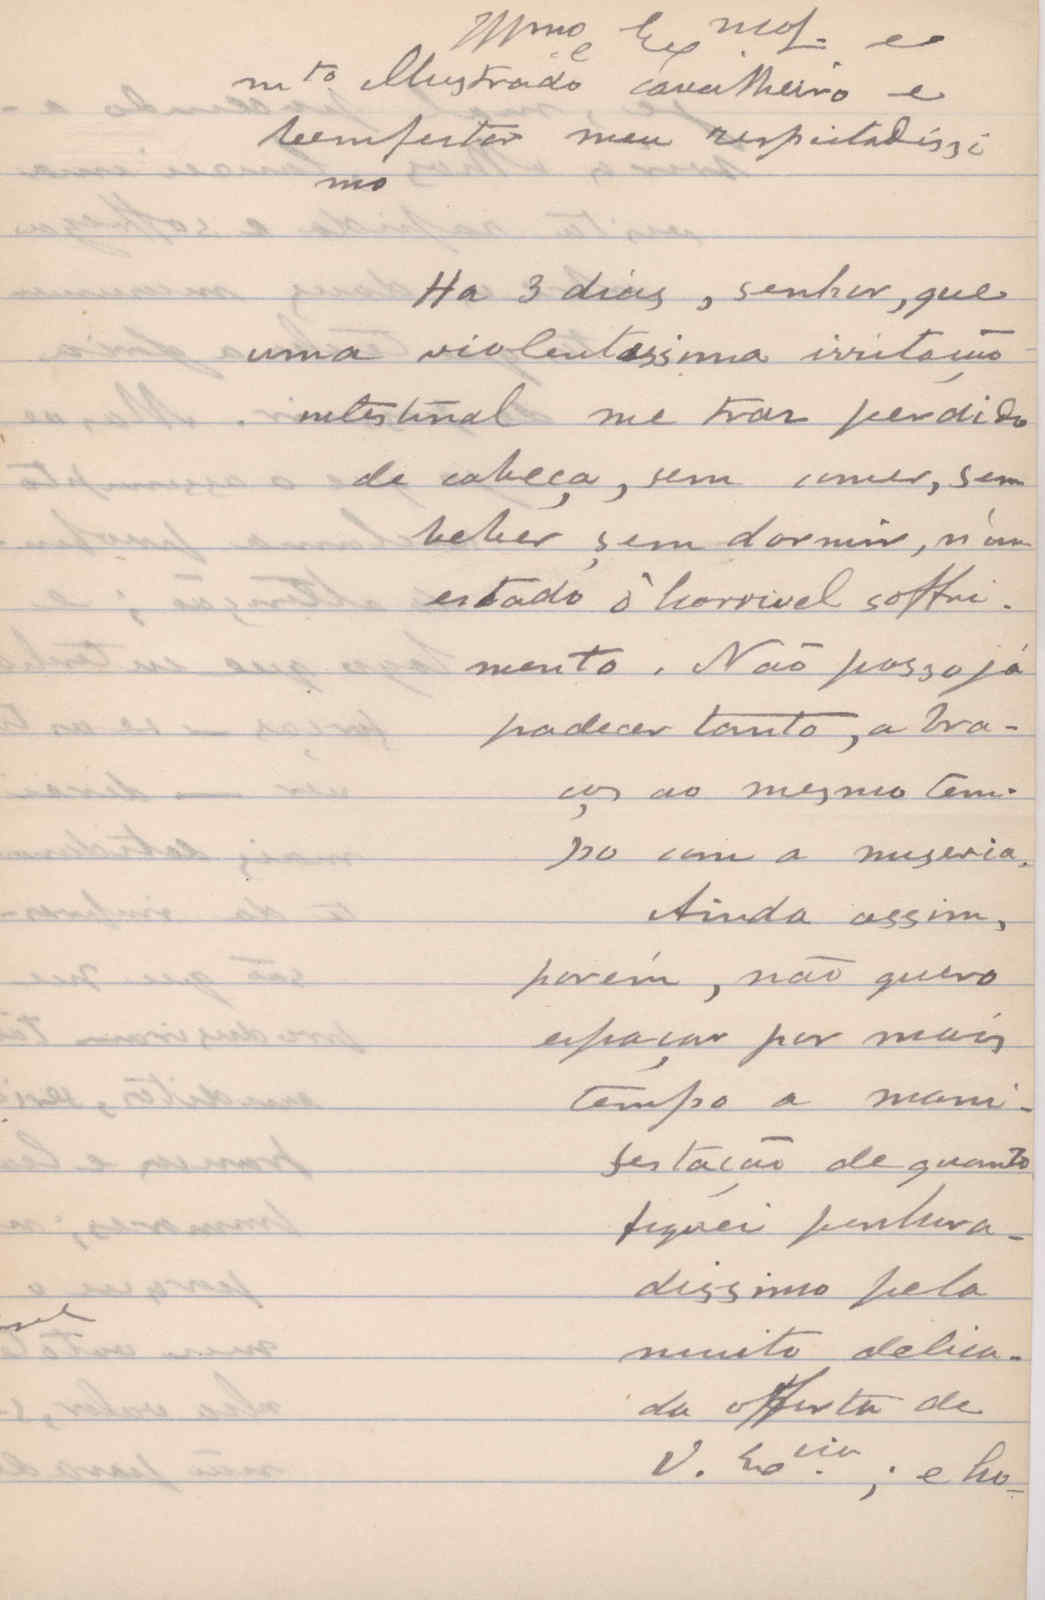 Illmo e Exmo
mto Illustrado cavalheiro e
bemfeitor meu respeitadissi
mo
Ha 3 dias, senhor, que
uma violentissima irritação
intestinal me traz perdido
de cabeça, sem comer, sem
beber, sem dormir, n'um
estado d'horrivel soffri-
mento. Não posso já
padecer tanto, a bra-
ços ao mesmo tem-
po com a miseria.
Ainda assim,
porém, não quero
espaçar por mais
tempo a mani-
festação de quanto
fiquei penhora-
dissimo pela
muito delica-
da offerta de
V. Excia.; e ho-